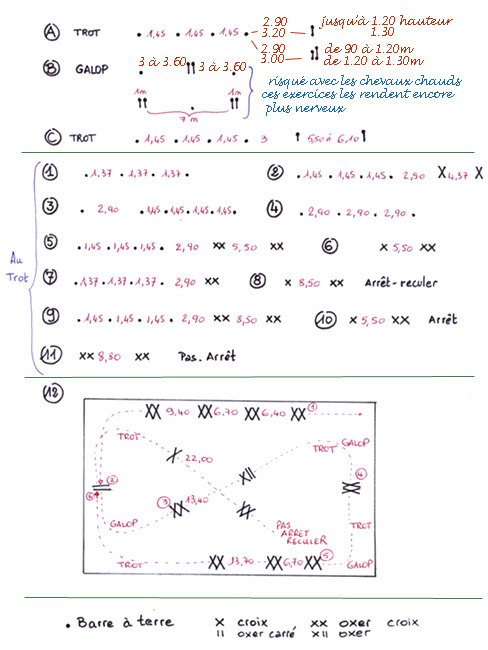 2.90 jusqu'à 1.20 hauteur
A TROT . 1,45 . 1,45 . 1,45 . 3.20 1.30
2.90 de 90 à 1.20m
3.00 de 1.20 à 1.30m
B GALOP 3 à 3.60 3 à 3.60
risqué avec les chevaux chauds
ces exercices les rendent encore
plus nerveux
1m 1m
7 m
C TROT . 1,45 . 1,45 . 1,45 . 3 5,50 à 6,10
Au Trot
1 . 1,37 . 1,37 . 1,37 .
2 . 1,45 . 1,45 . 1,45 . 2,90 X 4,37 X
3 . 2,90 . 1,45 . 1,45 . 1,45 . 1,45 .
4 . 2,90 . 2,90 . 2,90 .
5 . 1,45 . 1,45 . 1,45 . 2,90 XX 5,50 XX
6 X 5,50 XX
7 . 1,37 . 1,37 . 1,37 . 2,90 XX
8 X 8,50 XX Arrêt-reculer
9 . 1,45 . 1,45 . 1,45 . 2,90 XX 8,50 XX
10 X 5,50 XX Arrêt
11 XX 8,80 XX Pas. Arrêt
12
XX 9,40 XX 6,70 XX 6,40 XX 1
TROT 22,00 TROT GALOP
2
6 3 13,40 4
GALOP PAS TROT
ARRET
RECULER
TROT XX 13,70 XX 6,70 XX 5 GALOP
. Barre à terre X croix XX oxer croix
II oxer carré XII oxer